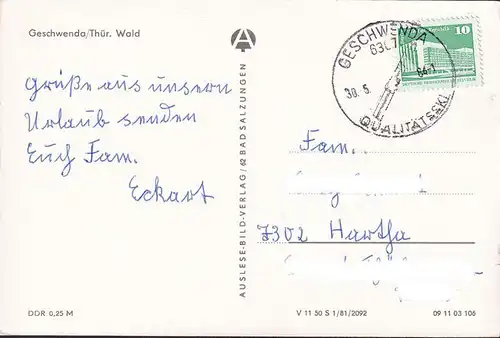 Geschwenda/Thür. Wald
Grüße aus unserm
Urlaub senden
Euch Fam.
Eckart
AUSLESE-BILD-VERLAG / 62 BAD SALZUNGEN
GESCHWENDA
6307
30. 5.
QUALITÄTSSKI
10
Fam.
7302 Hartha
DDR 0,25 M
V 11 50 S 1/81/2092
09 11 03 106